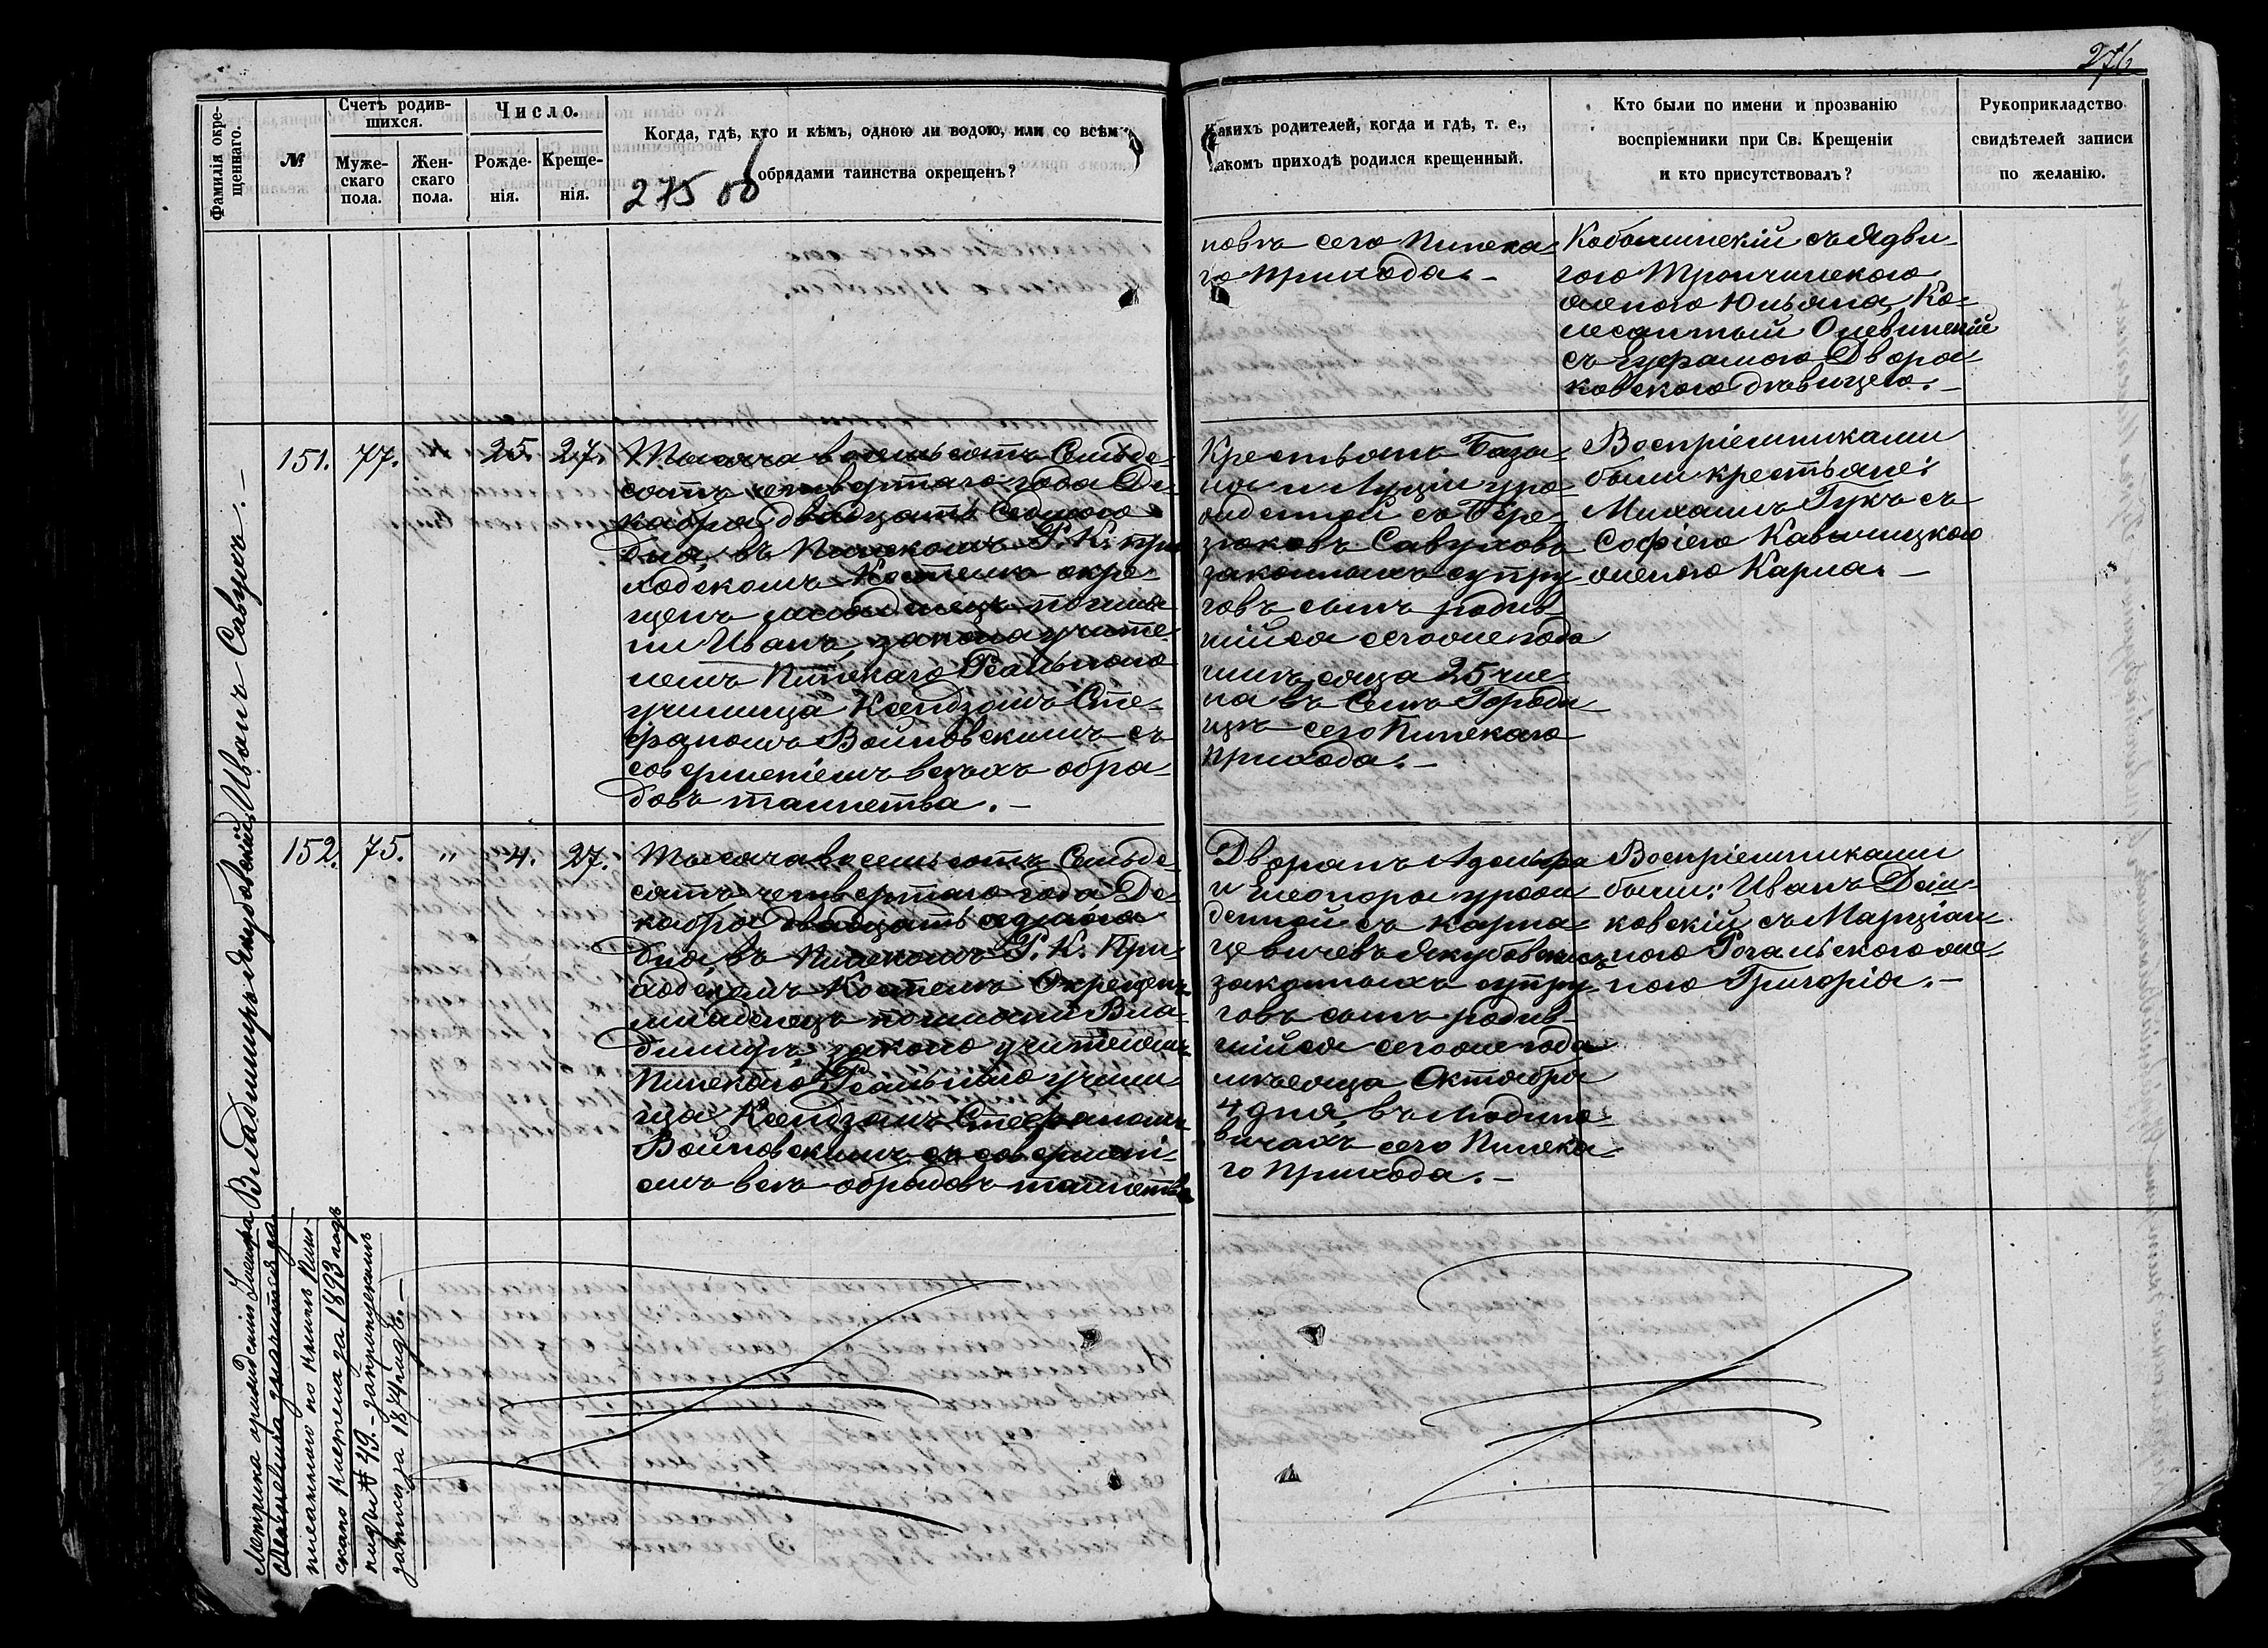 276
Фамилія окре-
щеннаго.
№
Счетъ родив-
шихся.
Муже-
скаго
пола.
Жен-
скаго
пола.
Число.
Рожде-
нія.
Креще-
нія.
Когда, гдѣ, кто и кѣмъ, одною ли водою, или со всѣм
обрядами таинства окрещенъ?
275 об
Какихъ родителей, когда и гдѣ, т. е.,
акомъ приходѣ родился крещенный.
Кто были по имени и прозванію
воспріемники при Св. Крещеніи
и кто присутствовалъ?
Рукоприкладство
свидѣтелей записи
по желанію.
новъ сего Пинска-
го прихода.-
съ Ядви-
гою
женою Юльяна, Ко-
съ Двора-
ковскою дѣвицею.-
Иванъ Савукъ.-
151.
77.
25.
27.
Тысяча восемьсотъ Семьде-
сятъ четвертаго года Де-
кабря двадцать Седьмого
дня, въ Пинскомъ Р. К. при-
ходскомъ Костелѣ окре-
щенъ младенецъ по име-
ни Иванъ, закона учите-
лемъ Пинскаго Реальнаго
училища Ксендзомъ Сте-
фаномъ Войновскимъ съ
совершеніемъ всѣхъ обря-
довъ таинства.-
Крестьянъ Бази-
ля и Луціи уро-
жденной съ Бере-
зюковъ Савуковъ
законныхъ супру-
говъ сынъ родив-
шійся сегоже года
мѣсяца 25 чис-
ла въ Селѣ Городи-
щѣ сего Пинскаго
прихода.-
Воспріемниками
были крестьяне:
Михаилъ Гукъ съ
Софіею Кавалицкою
женою Карла.-
Владимиръ Якубовскій
152.
75.
"
4.
27.
Тысяча восемьсотъ Семьде-
сятъ четвертаго года Де-
кабря двадцать седьмого
дня, въ Пинскомъ Р. К. При-
ходскомъ Костелѣ Окрещенъ
младенецъ по имени Вла-
димиръ, закона учителемъ
Пинскаго Реальнаго учили-
ща Ксендзомъ Стефаномъ
Войновскимъ съ совершені-
емъ всѣхъ обрядовъ таинства
Дворянъ Адольфа
и Елеоноры урож-
денной съ Карпа-
цевичевъ Якубовскихъ
законныхъ супру-
говъ сынъ родив-
шійся сегоже года
мѣсяца Октября
4 дня, въ Людино-
вичахъ сего Пинска-
го прихода.-
Воспріемниками
были: Иванъ Дейн-
ковскій съ Марціан-
ною Рогальскою же-
ною Григорія.-
Метрика
значится за-
писанною по книгѣ Пин-
скаго Костела за 1893 годъ
подъ № 49.- запропущеніемъ
записи за 1874 годъ.-